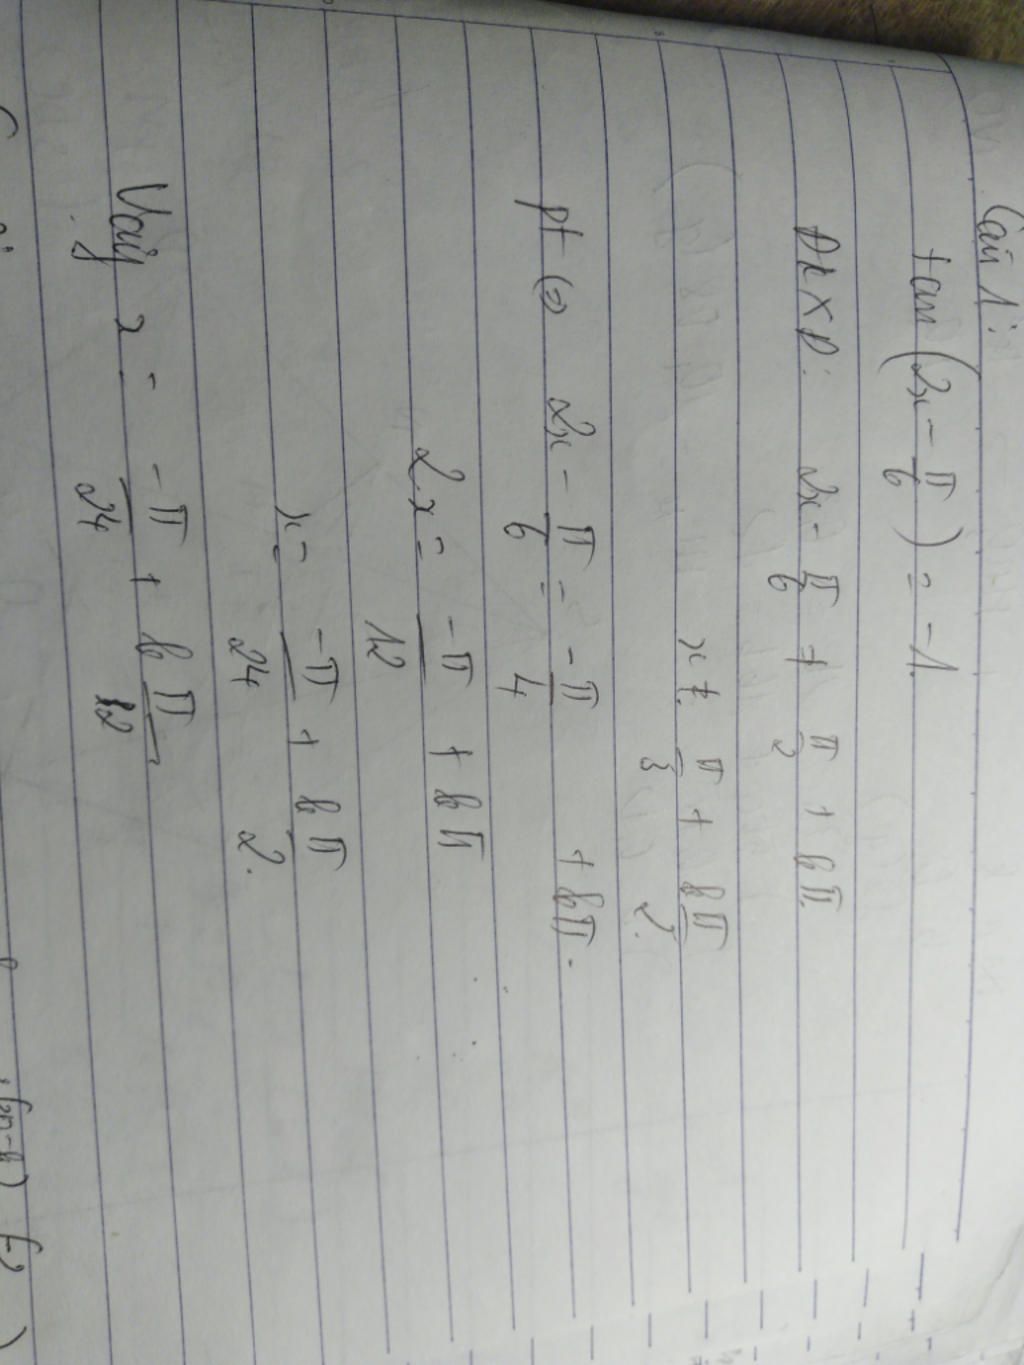 Câu 1:
tan(2x - π/6) = -1.
ĐKXĐ: 2x - π/6 ≠ π/2 + kπ.
x ≠ π/3 + kπ/2.
pt ⇔ 2x - π/6 = -π/4 + kπ.
2x = -π/12 + kπ
x = -π/24 + kπ/2.
Vậy x = -π/24 + kπ/2